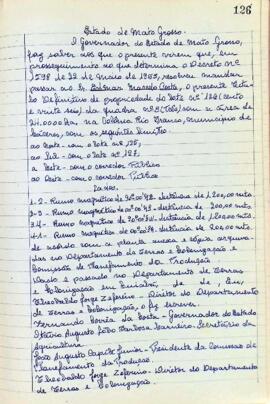 126
Estado de Mato Grosso.
O Governador do Estado de Mato Grosso,
faz saber aos que o presente virem que, em
prosseguimento ao que determina o Decreto nº
1598 de 22 de Maio de 1953, resolveu mandar
passar ao sr. Macedo Costa, o presente Titu
lo Definitivo de propriedade do lote nº 126 (cento
e vinte seis) da quadra nº 3 (três) com a área de
24.0000 Ha, na Colônia Rio Branco, município de
Cáceres, com os seguintes limites:
ao Norte - com o lote nº 125;
ao Sul - com o lote nº 127;
a Leste - com o corredor Público
ao Oeste - com o corredor Público
Lados.
1-2 - Rumo magnético de distância de 1.200,00 mts
2-3 - Rumo magnético de distância de 200,00 mts.
3-4 - Rumo magnético de distância de 1.200,00 mts
4-1 - Rumo magnético de distância de 200,00 mts.
de acordo com a planta anexa e cópia arquiva
da no Departamento de Terras e Colonização e
Comissão de Planejamento da Produção
Dado e passado no Departamento de Terras
e Colonização em Cuiabá, de de, Eu,
Jorge Zeferino - Diretor do Departamento
de Terras e Colonização, o fiz escrever.
Fernando Corrêa da Costa - Governador do Estado
Augusto João Barbosa Secretário da
Agricultura
João Augusto Capilé Junior - Presidente da Comissão de
Planejamento da Produção.
Jorge Zeferino - Diretor do Departamento
de Terras e Colonização.